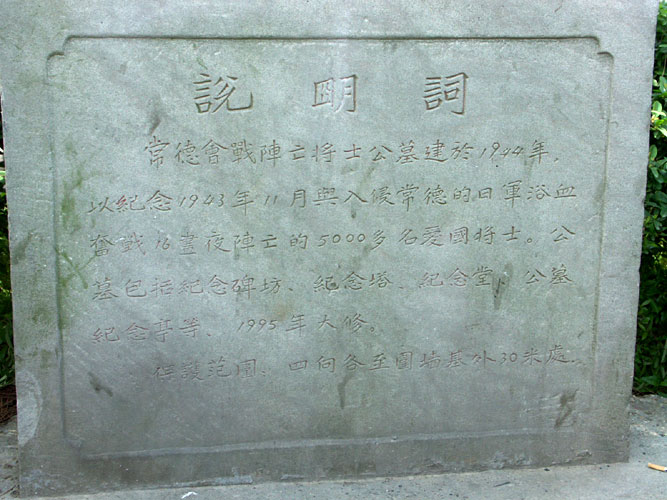 說明詞
常德會戰陣亡将士公墓建於1944年，
以紀念1943年11月與入侵常德的日軍浴血
奮戰16晝夜陣亡的5000多名愛國将士。公
墓包括紀念碑坊、紀念塔、紀念堂、公墓
紀念亭等，1995年大修。
保護范圍、四向各至圍墻基外30米處。